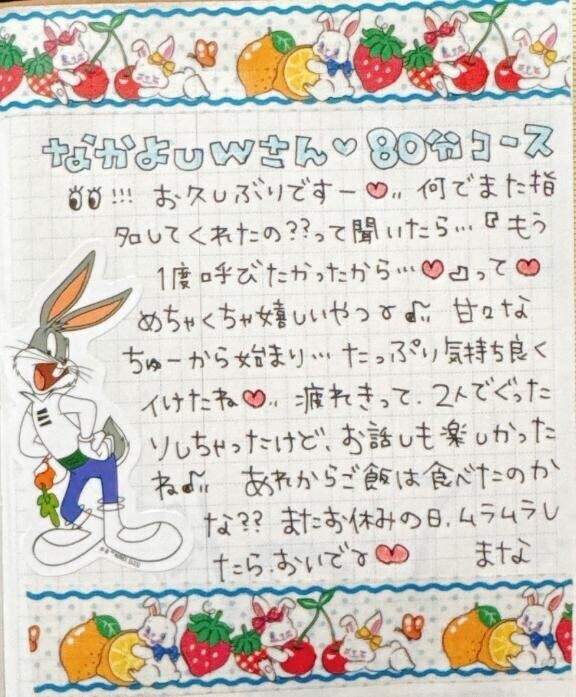 なかよしWさん♡80分コース
👀!!! お久しぶりですー♥,, 何でまた指
名してくれたの??って聞いたら…『もう
1度呼びたかったから…♥』って♥
めちゃくちゃ嬉しいやつ♡♪,, 甘々な
ちゅーから始まり…たっぷり気持ち良く
イけたね♥,, 疲れきって、2人でぐった
りしちゃったけど、お話しも楽しかった
ね♪,, あれからご飯は食べたのか
な?? またお休みの日、ムラムラし
たら、おいで♡♥ まな